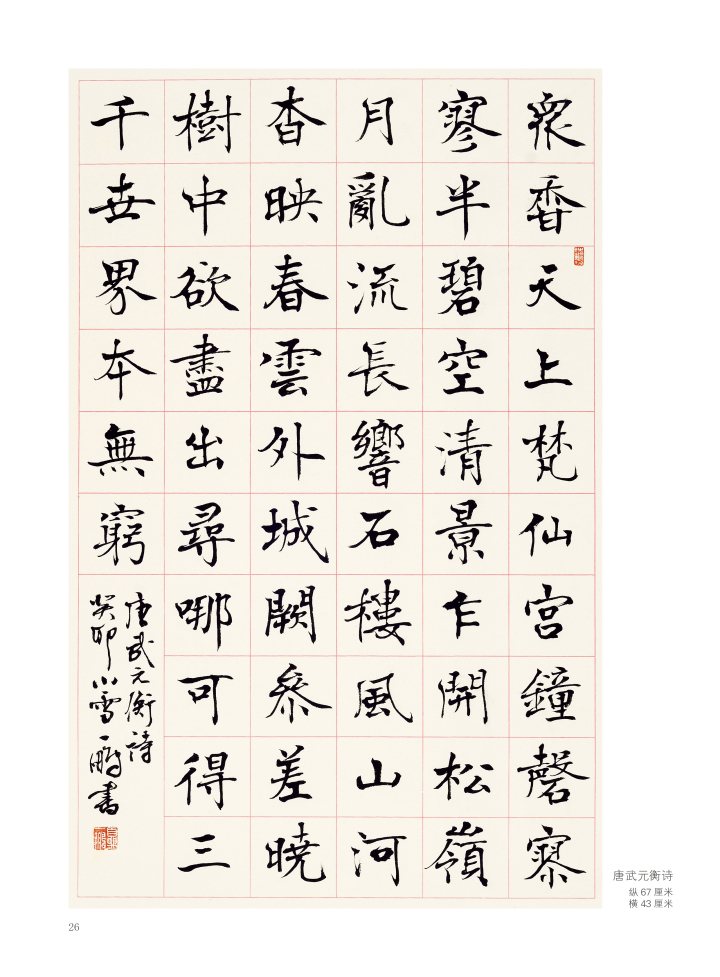 眾香天上梵仙宮鐘磬寥
寥半碧空清景乍開松嶺
月亂流長響石樓風山河
杳映春雲外城闕參差曉
樹中欲盡出尋哪可得三
千世界本無窮
唐武元衡詩
癸卯小雪一鵬書
唐武元衡诗
纵 67 厘米
横 43 厘米
26